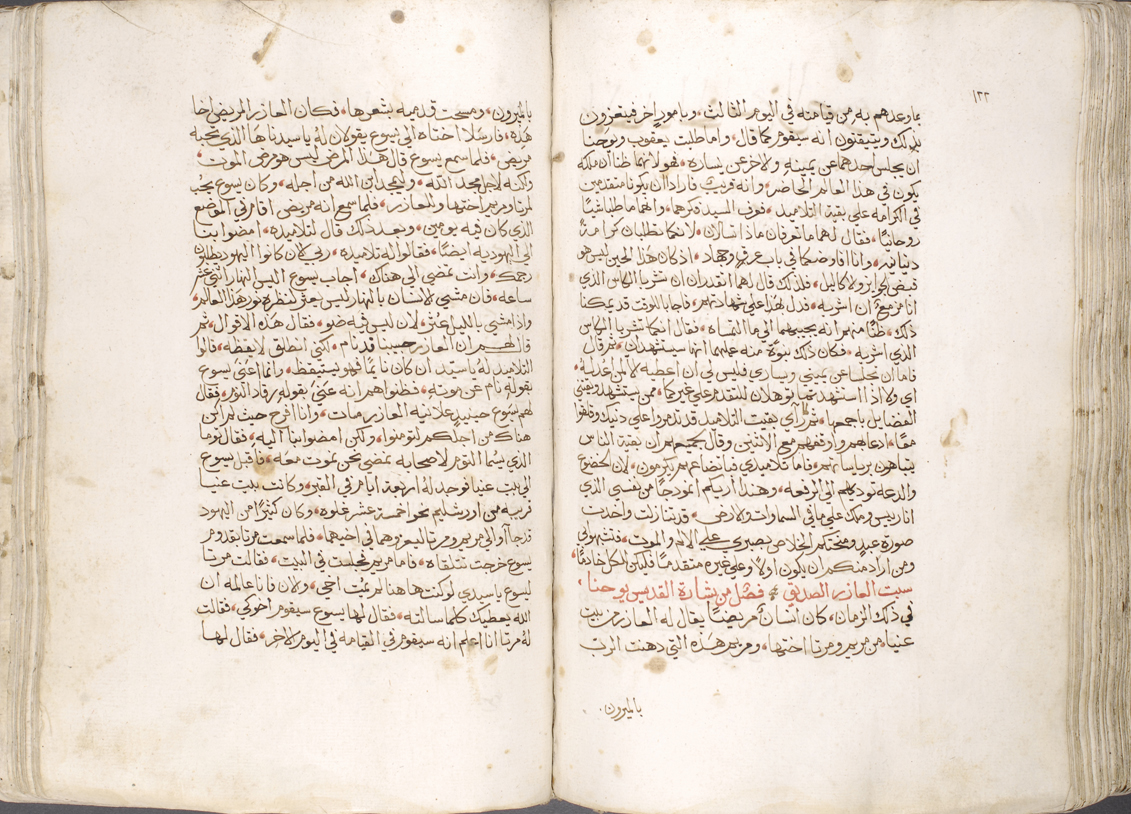 ١٢٢
بما وعدهم به من قيامته في اليوم الثالث، وبامور اخر فيتعزون
بذلك ويتيقنون انه سيقوم كما قال، واما طلبت يعقوب ويوحنا
ان يجلس احدهما عن يمينه والاخر عن يساره، فهو لانهما ظنا ان ملكه
يكون في هذا العالم الحاضر، وانه قريب فارادا ان يكونا متقدمين
في الكرامه على بقية التلاميذ، فعرف السيد فكرهما، وانهما ما طلبا شيا
روحانيا، فقال لهما ما تعرفان ماذا تسالان، لانكما تطلبان كرامة
دنيانيه، وانا افاوضكما في باب عرق وجهاد، اذ كان هذا الحين ليس هو
قبض الجوايز ولا كاليل، فلذلك قال لهما اتقدران ان تشربا الكاس الذي
انا مزمع ان اشربه، فدل بهذا على شهادتهم، فاجابا للوقت قد يمكنا
ذلك، ظنا منهم انه يجيبهما الى ما التمساه، فقال انكما تشربا الكاس
الذي اشربه، فكان ذلك نبوة منه عليهما انهما سيستشهدان، ثم قال
فاما ان يجلسا عن يميني ويساري فليس لي ان اعطيه الا لمن اعد له،
اي ولا اذا استشهدتما يوهلان للتقدم على غيركما، ممن يستشهد ويقتني
الفضايل باجمعها، ثم راى بقيت التلاميذ قد تذمروا على ذنيك وقلقوا
معا، ادعاهم واوقفهم مع الاثنين وقال بجميعهم ان بقية الناس
يتباهون برياساتهم، فاما تلاميذي فباتضاعهم يكرمون، لان الخضوع
والدعه تودكم الى الرفعه، وهنذا اريكم انموذجا من نفسي الذي
انا رييس وملك على ما في السماوات والارض، قد تنازلت واخذت
صورة عبد ومنحتكم الخلاص بصبري على الالام والموت، فتشبهوا بي
ومن اراد منكم ان يكون اولا وعلى غيره متقدما فليكن للكل خادما،
سبت العازر الصديق، فصل من بشارة القديس يوحنا،
في ذلك الزمان، كان انسان مريضا يقال له العازر من بيت
عنيا، من مريم ومرتا اختها، ومريم هذه التي دهنت الرب
بالميرون،
بالميرون، ومسحت قدميه بشعرها، فكان العازر المريض اخا
هذه، فارسلا اختاه الى يسوع يقولان له يا سيدنا ها الذي تحبه
مريض، فلما سمع يسوع قال هذا المرض ليس هو مرض الموت،
ولكنه لاجل مجد الله، وليمجد ابن الله من اجله، وكان يسوع يحب
لمرتا ومريم اختها وللعازر، فلما سمع انه مريض اقام في الموضع
الذي كان فيه يومين، وبعد ذلك قال لتلاميذه، امضوا بنا
الى اليهوديه ايضا، فقالوا له تلاميذه، ربي الان كانوا اليهود يطلبون
رجمك، وانت تمضي الى هناك، اجاب يسوع اليس النهار اثنتي عشر
ساعه، فان مشى الانسان بالنهار ليس يعثر لنظره نور هذا العالم،
واذا مشى بالليل عثر، لان ليس فيه ضو، فقال هذه الاقوال، ثم
قال لهم ان العازر حبيبنا قد نام، لكني انطلق لايقظه، قالوا
التلاميذ له يا سيد ان كان نايما فهو يستيقظ، وانما اعنى يسوع
بقوله نام عن موته، فظنوا هم انه عنى بقوله رقاد النوم، فقال
لهم يسوع حينيذ علانيه العازر مات، وانا افرح حيث لم اكن
هناك من اجلكم لتومنوا، ولكن امضوا بنا اليه، فقال توما
الذي يسما التوم لاصحابه نمضي نحن نموت معه، فاقبل يسوع
الى بيت عنيا فوجد له اربعة ايام في القبر، وكانت بيت عنيا
قريبه من اورشليم نحو خمسة عشر غلوه، وكان كثيرا من اليهود
قد جاوا الى مريم ومرتا ليعزوهما في اخيهما، فلما سمعت مرتا بقدوم
يسوع خرجت تتلقاه، فاما مريم فجلست في البيت، فقالت مرتا
ليسوع يا سيدي لو كنت هاهنا لم يمت اخي، والان فانا عالمه ان
الله يعطيك كلما سالته، فقال لها يسوع سيقوم اخوكي، فقالت
له مرتا انا اعلم انه سيقوم في القيامه في اليوم الاخر، فقال لها